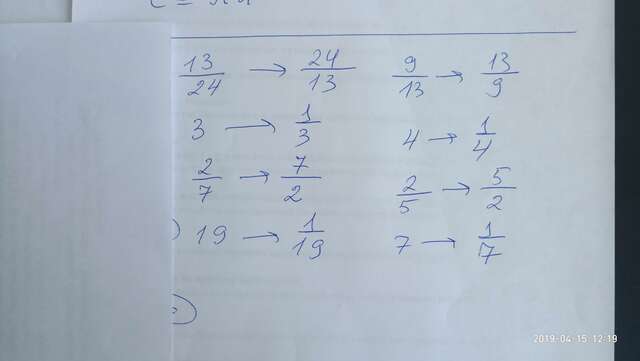 13/24 → 24/13 9/13 → 13/9
3 → 1/3 4 → 1/4
2/7 → 7/2 2/5 → 5/2
) 19 → 1/19 7 → 1/7
2019-04-15 12:19